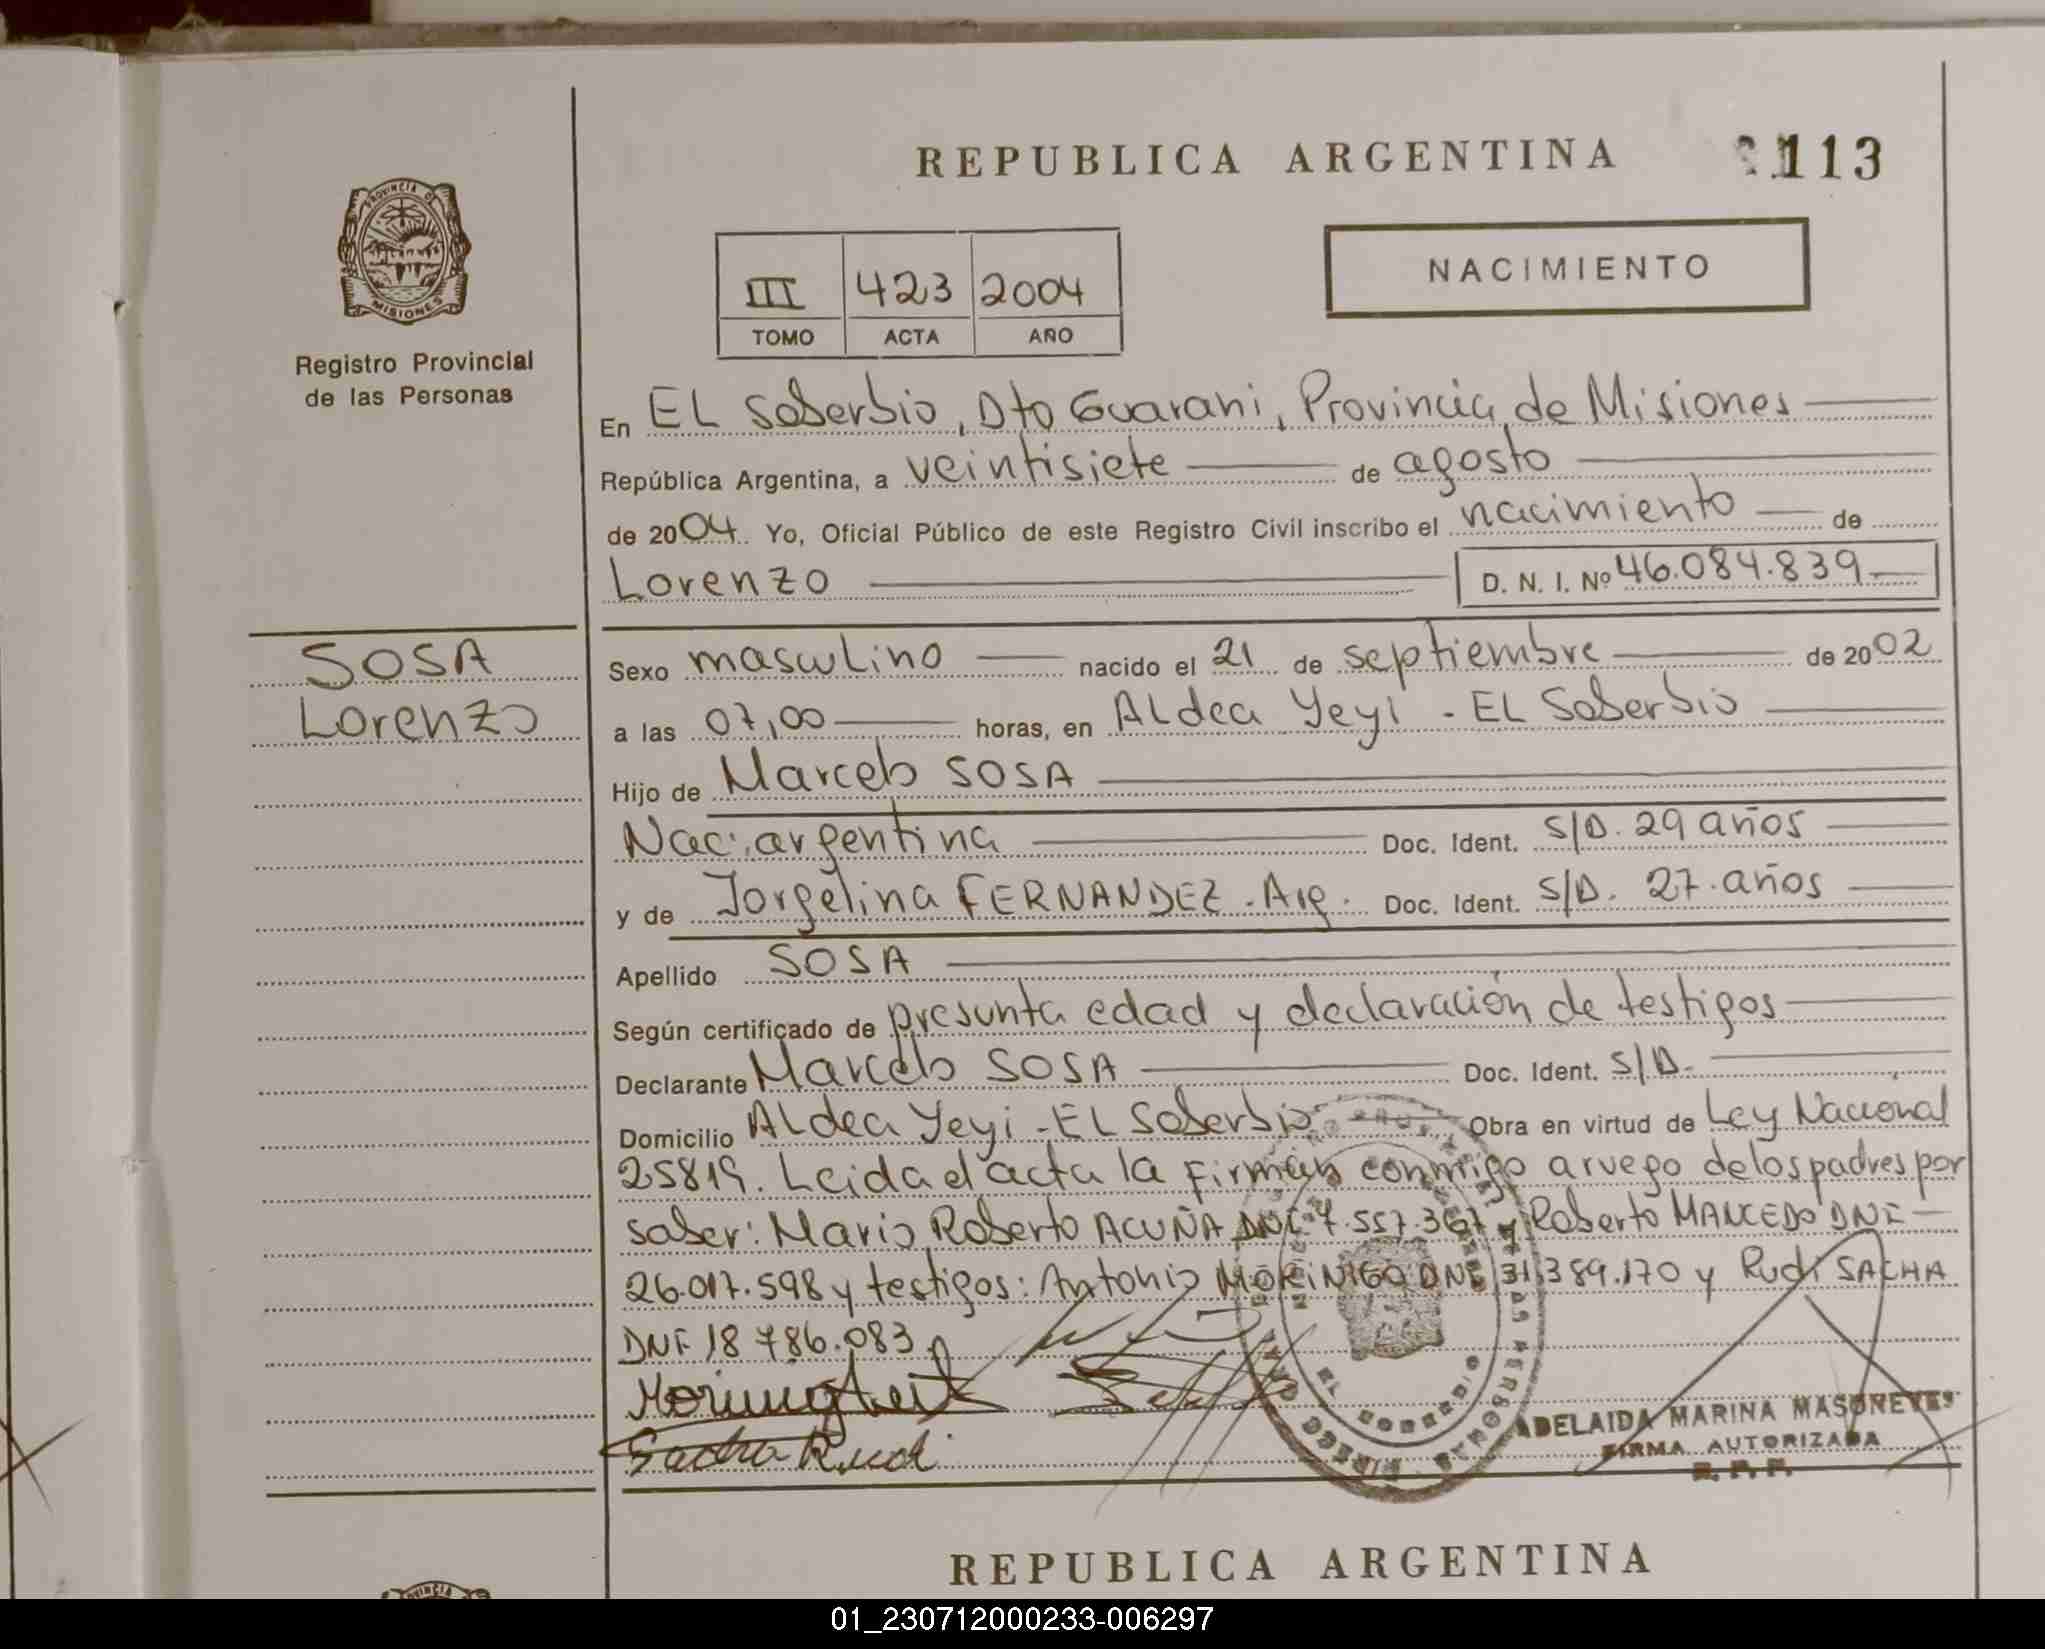 REPUBLICA ARGENTINA 113
PROVINCIA DE
MISIONES
Registro Provincial
de las Personas
NACIMIENTO
III 423 2004
TOMO ACTA AÑO
En EL Soberbio, Dto Guarani, Provincia de Misiones
República Argentina, a veintisiete de agosto
de 2004 Yo, Oficial Público de este Registro Civil inscribo el nacimiento de
Lorenzo D. N. I. Nº 46.084.839
SOSA
Lorenzo
Sexo masculino nacido el 21 de septiembre de 2002
a las 07,00 horas, en ALdea Yeyi - EL Soberbio
Hijo de Marcelo SOSA
Nac: argentina Doc. Ident. S/D. 29 años
y de Jorgelina FERNANDEZ - Arg. Doc. Ident. S/D. 27. años
Apellido SOSA
Según certificado de presunta edad y declaración de testigos
Declarante Marcelo SOSA Doc. Ident. S/D.
Domicilio ALdea Yeyi - EL Soberbio Obra en virtud de Ley Nacional
25819. Leida el acta la firman conmigo a ruego de los padres por
saber: Mario Roberto ACUÑA DNI 7.557.367 y Roberto MANCEDO DNI
26.017.598 y testigos: Antonio MORINIGO DNI 31.389.170 y Rudi SACHA
DNI 18 786.083
Sacha Rudi
ADELAIDA MARINA MASONEYES
FIRMA AUTORIZADA
R. P. P.
REPUBLICA ARGENTINA
01_230712000233-006297